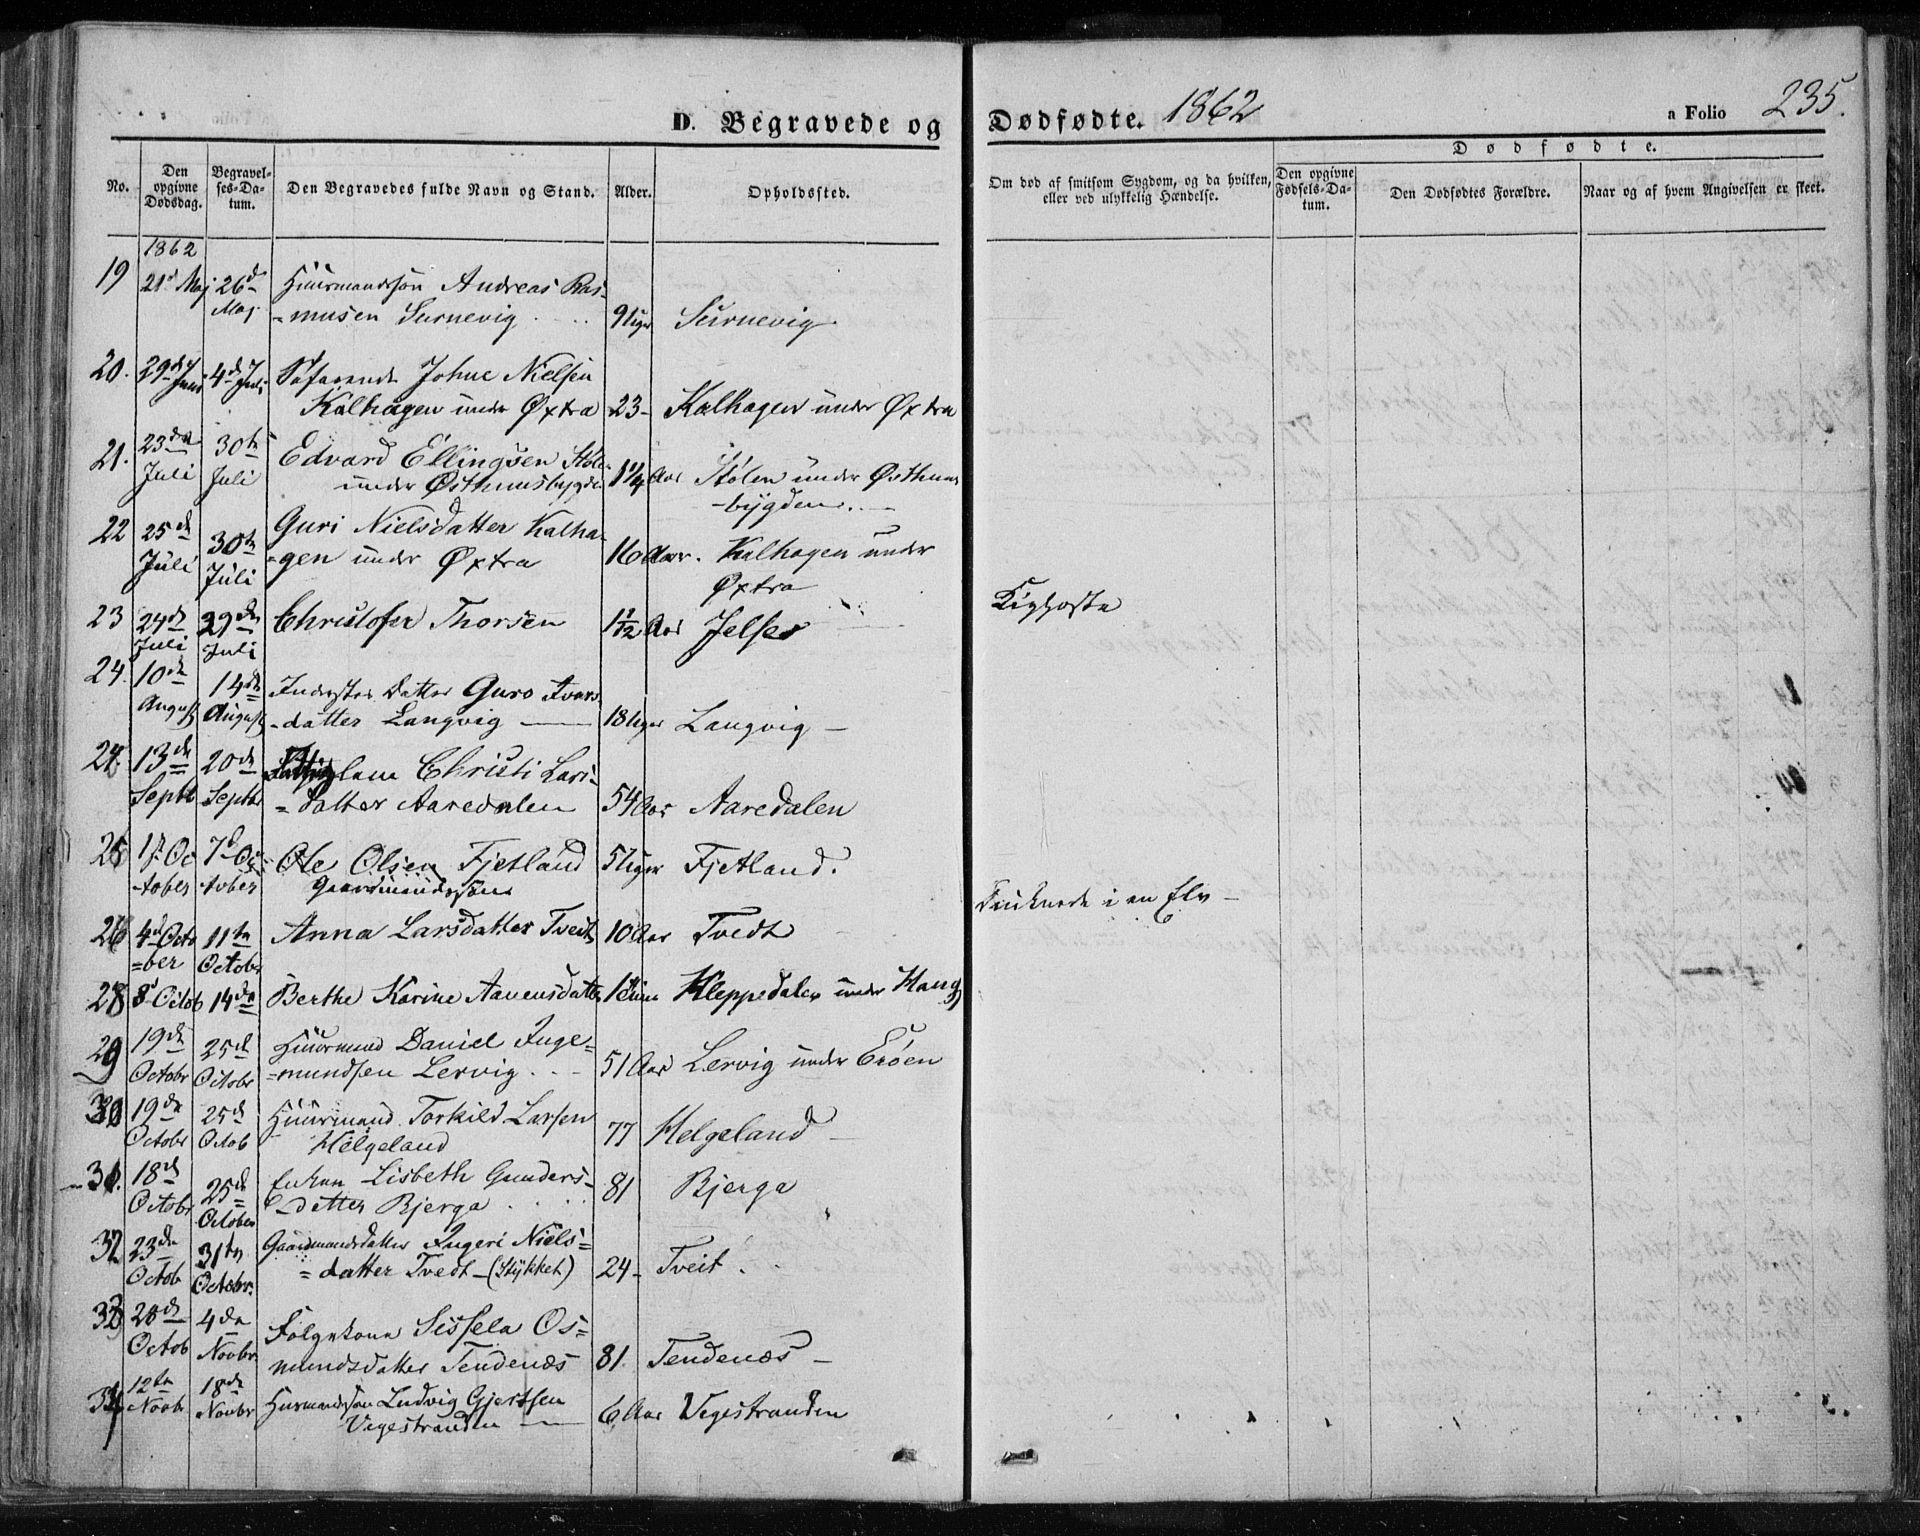 D. Begravede og Dødfødte. 1862 a Folio 235.
No.
Den opgivne Dødsdag.
Begravelses-Datum.
Den Begravedes fulde Navn og Stand.
Alder.
Opholdssted.
Om død af smitsom Sygdom, og da hvilken, eller ved ulykkelig Hændelse.
Dødfødte.
Den opgivne Fødsels-Datum.
Den Dødfødtes Forældre.
Naar og af hvem Angivelsen er skeet.
1862
19 21d Maj 26d Maj Huusmandssøn Andreas Ras-
=musen Surnevig 9 Uger Surnevig
20. 29de Juni 4d Juli Søfarende Johne Nielsen
Kalhagen under Øxtra 23 - Kalhagen under Øxtra
21. 23de Juli 30te Juli Edvard Ellingsen Støle
under Østhuusbygde 1 1/4 Aar Stølen under Østhuus
-bygden.
22 25de Juli 30te Juli Guri Nielsdatter Kalha-
=gen under Øxtra 16 Aar. Kalhagen under
Øxtra
23 24de Juli 29de Juli Christofer Thorsen 1 1/2 Aar Jelse Kighoste
24. 10de August 14de August Inderstes Datter Guro Ivars-
-datter Langvig 18 Uger Langvig -
13de Septb 20de Septbr Christi Lars-
=datter Aaredalen 54 Aar Aaredalen
October 7d October Ole Olsen Fjetland 5 Uger Fjetland.
Gaardmandssøn
4d October 11te October Anna Larsdatter Tveit 10 Aar Tvedt Druknede i en Elv -
28 8d Octob 14de Berthe Karine Kleppedalen under Haug
29 19de Octobr 25d Octobr Huusmand Daniel Inge-
=mundsen Lervig 51 Aar Lervig under Erøen
30 19de Octobr 25d Octob Huusmand Torkild Larsen
Helgeland 77 Helgeland -
31. 18d Octobr 25d October Enken Lisbeth Gunders-
datter Bjerga 81 Bjerga
32 23de Octob 31te Octobr. Gaardmandsdatter Ingeri Niels=
=datter Tvedt - (Stykket) 24 - Tveit
33 28de Octob 4de Novbr. Følgekone Sissela Os=
mundsdatter Tendenæs 81. Tendenæs -
34 12te Novbr 18de Novbr Husmandssøn Ludvig Gjertsen
Vegestranden - 6 Aar Vegestranden